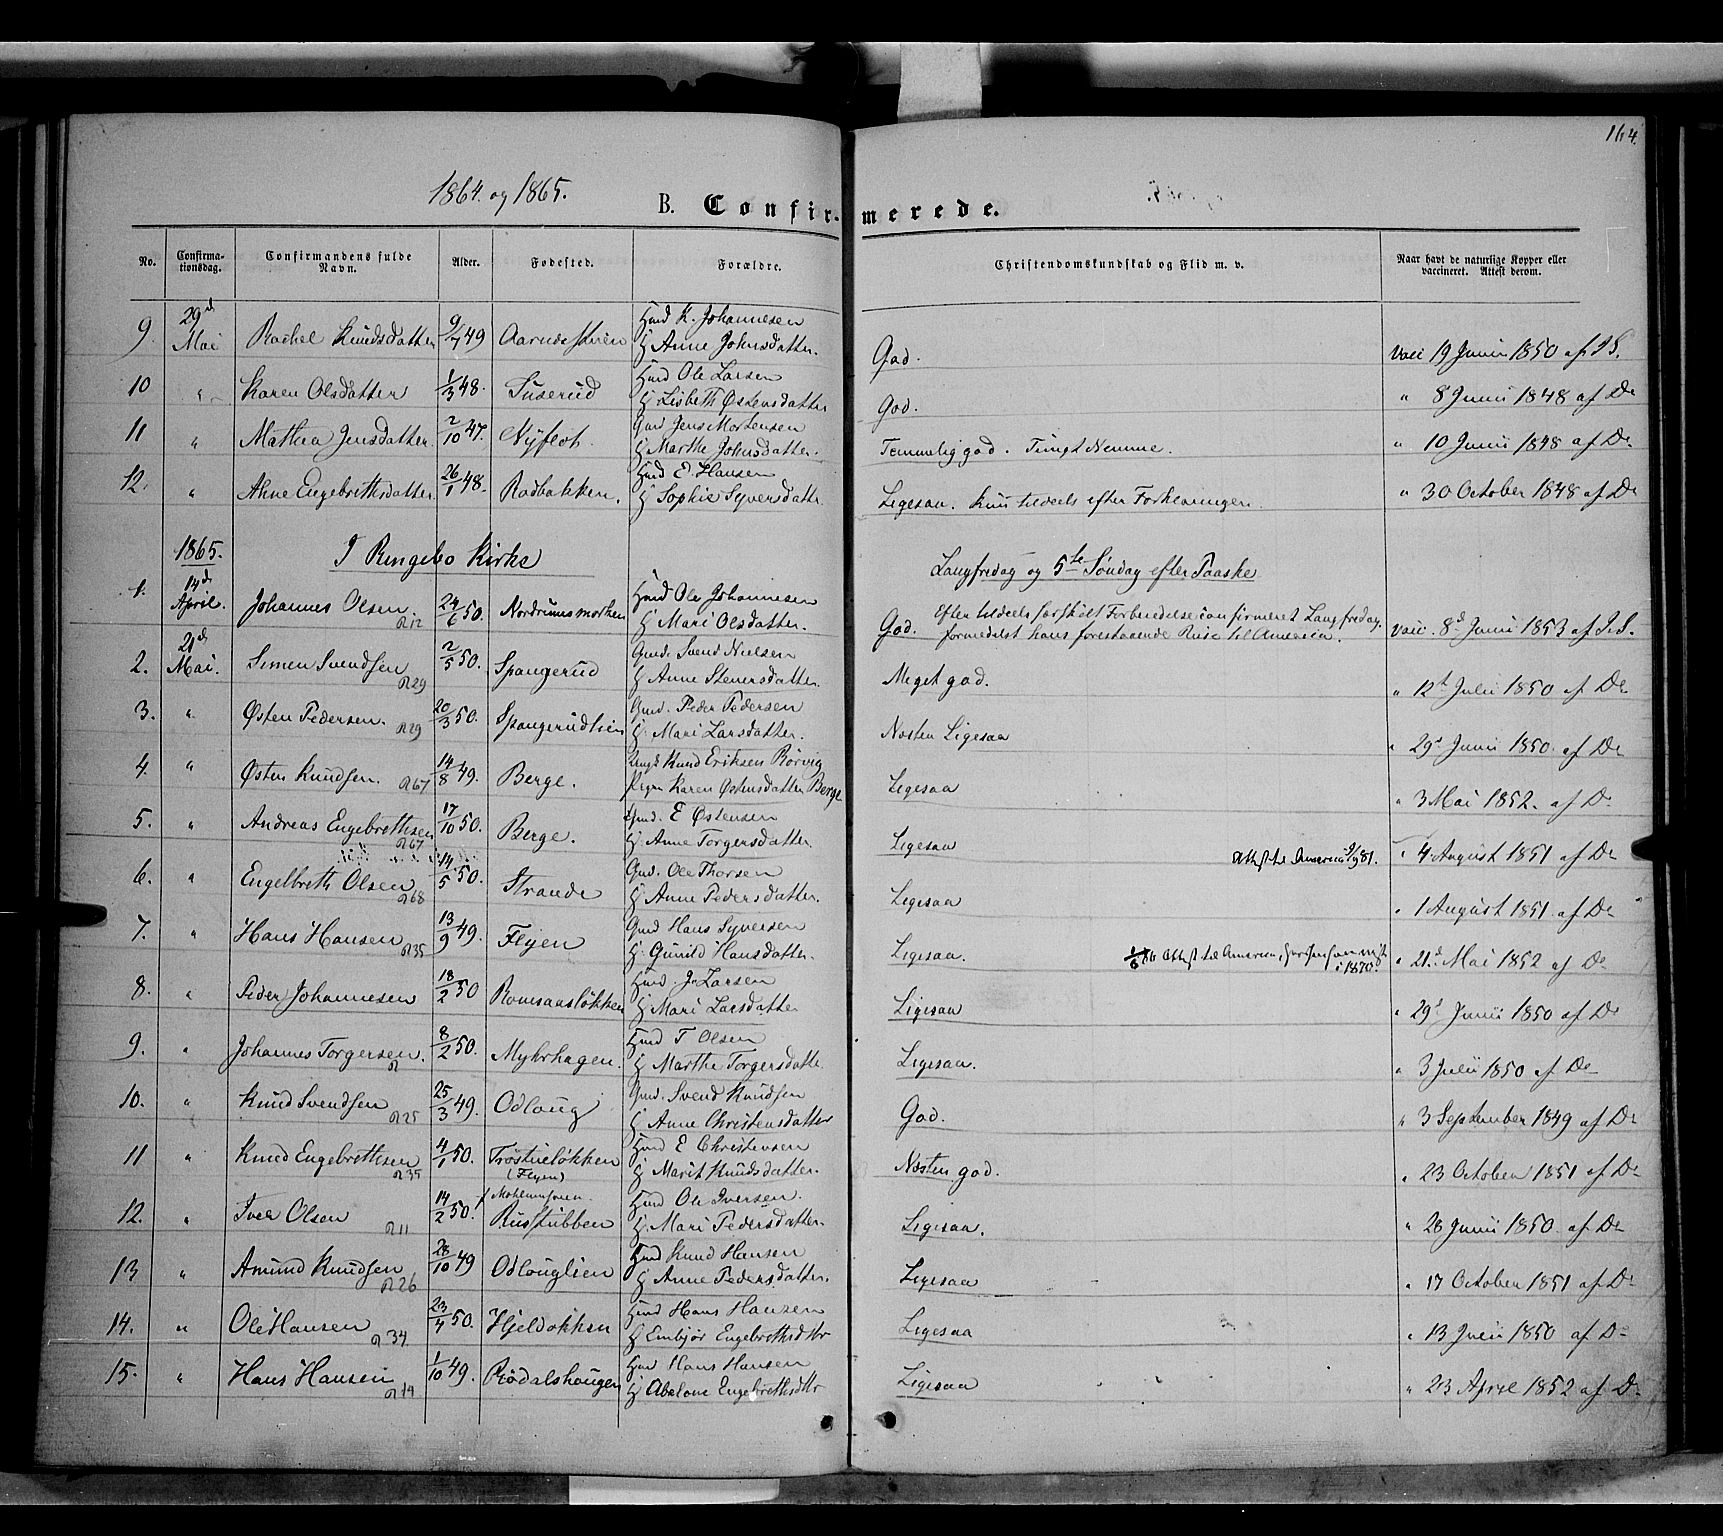 164.
1864. og 1865.
B. Confirmerede.
No. Confirmationsdag. Confirmandens fulde Navn. Alder. Fødested. Forældre. Christendomskundskab og Flid m. v. Naar havt de naturlige Kopper eller vaccineret. Attest derom.
9 29d Mai Rachel Knudsdatter 9/7 49 Husmd K. Johannesen
Hu Anne Johnsdatter. God. Vacc 19 Junii 1850 af J.S.
10 " Karen Olsdatter 1/3 48. Suserud Husmd Ole Larsen
Hu Lisbeth Østensdatter God. " 8 Junii 1848 af Do
11 " Mathea Jensdatter. 2/10 47. Nyfløt. Gmd Jens Mortensen
Hu Marthe Johnsdatter. Temmelig god. Tungt Nemme. " 10 Junii 1848 af Do
12. " Anne Engebrethsdatter 26/1 48. Rødbakken. Husmd E. Hansen
Hu Sophie Syversdatter Ligesaa. Kun tildeels efter Forklaringen. " 30 October 1848 af Do
1865. I Ringebo Kirke Langfredag og 5te Søndag efter Paaske
1. 14d April. Johannes Olsen. 24/6 50. Nordrumsmorken Husmd Ole Johannesen
Hu Mari Olsdatter. God. Efter tildeels særskilt Forberedelse confirmeret Langfredag,
formedelst hans forestaaende Reise til America. Vacc. 8d Junii 1853 af J.S.
R12
2. 21d Mai. Simen Svendsen 2/5 50. Spangerud Gmd. Svend Nielsen
Hu Anne Stenersdatter. Meget god. " 12t Julii 1850 af Do
R29
3. " Østen Pedersen. 20/3 50. Spangerudlien Gmd. Peder Pedersen
Hu. Mari Larsdatter. Næsten Ligesaa " 29d Junii 1850. af Do
R29
4. " Østen Knudsen. 14/8 49. Berge. Ungk Knud Eriksen Rørvig
Pigen Karen Østensdatter Berge Ligesaa " 3 Mai 1852. af Do
R67
5. " Andreas Engebrethsen 17/10 50. Berge. Gmd. E Østensen
Hu. Anne Torgersdatter. Ligesaa Attest til America 81. " 4 August 1851 af Do
R67
6. " Engelbreth Olsen 14/5 50. Strande Gmd. Ole Thorsen
Hu Anne Pedersdatter. Ligesaa " 1 August 1851 af Do
R68
7. " Hans Hansen 13/9 49. Flyen Gmd Hans Syversen
Hu. Gunild Hansdatter. Ligesaa. Attest til America, " 21d Mai 1852 af Do
i 1870.
R35
8. " Peder Johannesen 18/2 50 Romsaasløkken Husmd. J. Larsen
Hu. Mari Larsdatter Ligesaa " 29d Junii 1850 af Do
9. " Johannes Torgersen. 8/2 50. Myhrhagen. Husmd T Olsen
Hu Marthe Torgersdatter Ligesaa. " 3 Julii 1850 af Do
R
10. " Knud Svendsen 25/3 49. Odloug Gmd. Svend Knudsen
Hu Anne Christensdatter God. " 3 September 1849 af Do
R25
11 " Knud Engebrethsen 4/1 50. Trøstueløkken
(Flyen) Husmd E Christensen
Hu Marit Knudsdatter. Næsten god. " 23 October 1851 af Do
R35
12. " Iver Olsen 14/2 50. Russtubben Husmd Ole Iversen.
Hu. Mari Pedersdatter. Ligesaa. " 28 Junii 1850. af Do
R11
13 " Amund Knudsen 28/10 49 Odlouglien Husmd Knud Hansen
Hu Anne Pedersdatter. Ligesaa " 17 October 1851 af Do
R26
14. " Ole Hansen 23/4 50. Hjeldokken Husmd Hans Hansen
Hu Embjør Engebrethsdtr Ligesaa " 13 Julii 1850 af Do
R34.
15. " Hans Hansen 1/10 49. Rødalshaugen Husmd Hans Hansen
Hu Abelone Engebrethsdtr Ligesaa " 23 April 1852 af Do
R14